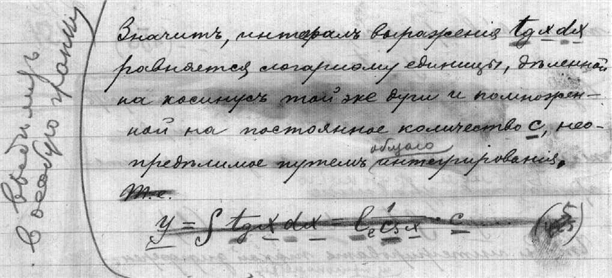 Значитъ, интералъ выраженія tgxdx
равняется логариѳму единицы, дѣленной
на косинусъ той же дуги и помножен-
ной на постоянное количество с, нео-
предѣлимое путемъ общаго интегрированія,
т.е.
y = ∫ tgx dx = le 1/csx · c (5)
въ особую